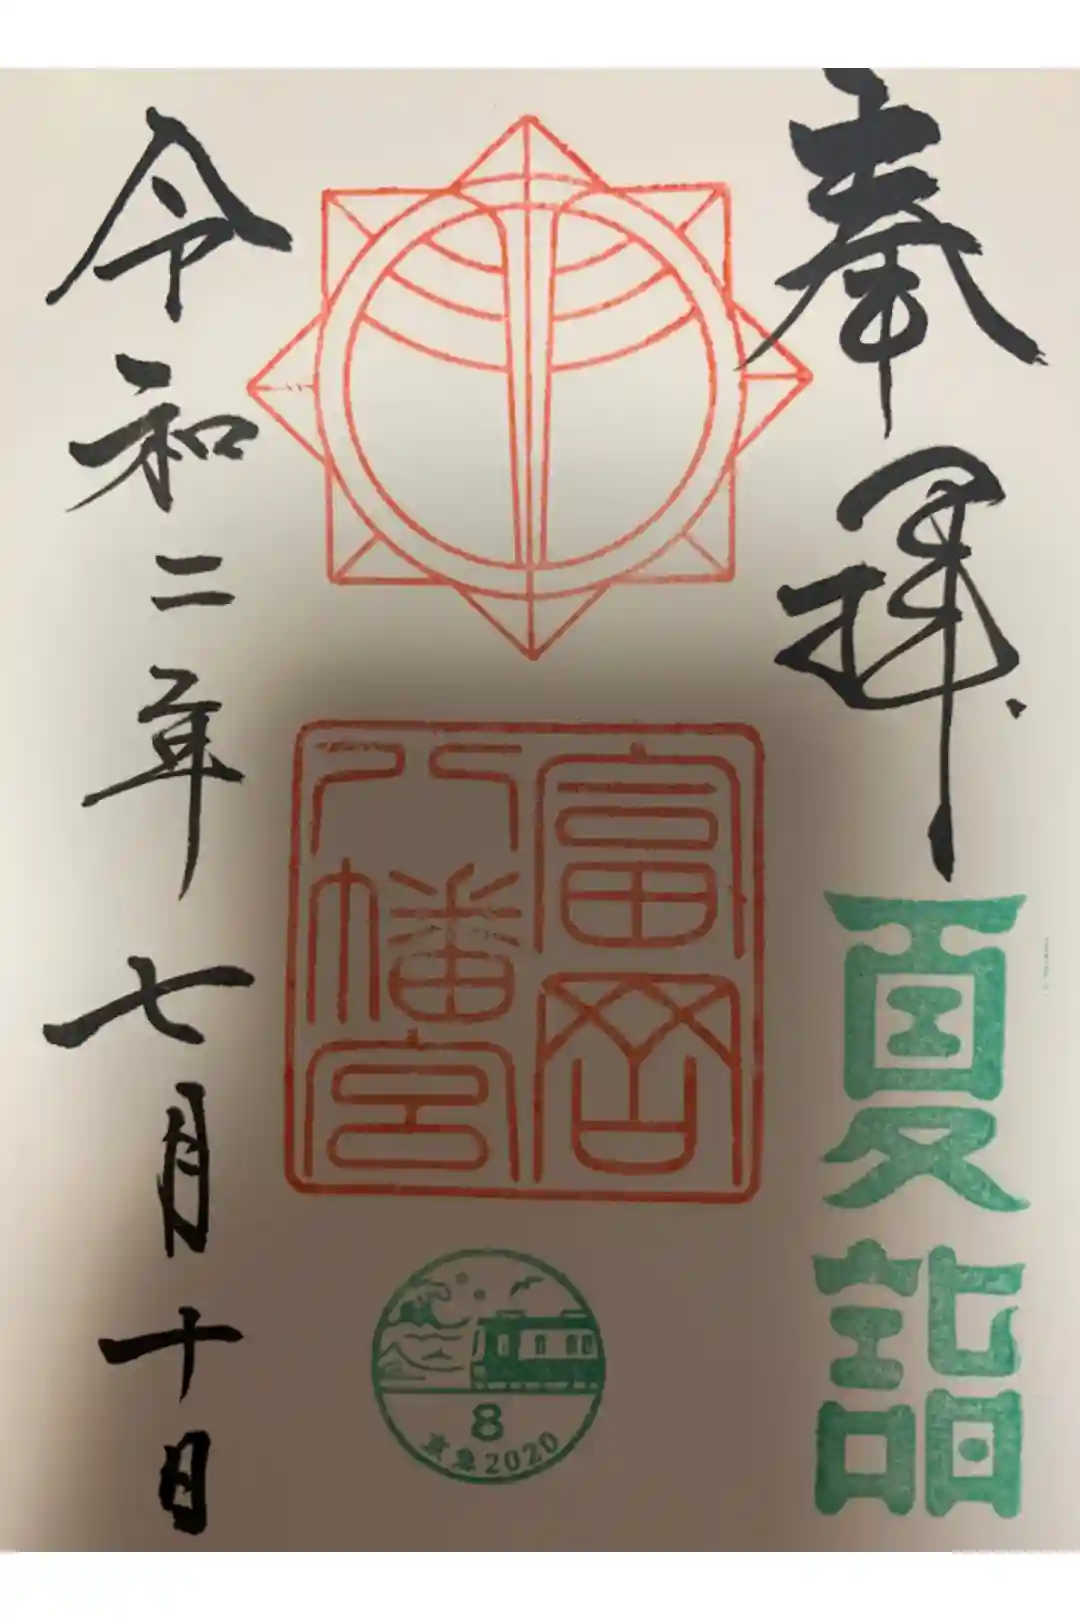 奉拝
夏詣
富岡
八幡宮
8
京急2020
令和二年七月十日